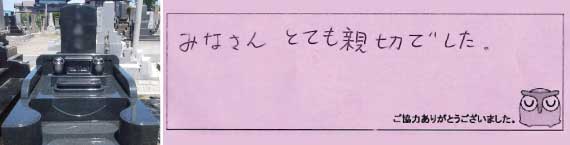 みなさん とても親切でした。
ご協力ありがとうございました。